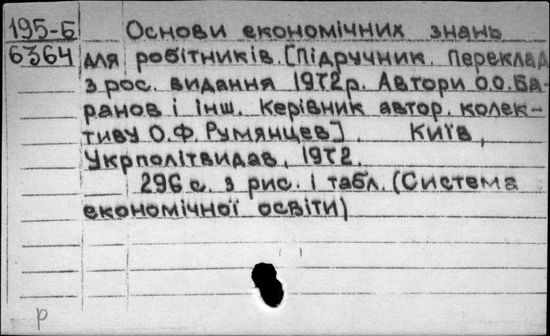 195-Б
6364
Основи економічних знань
для робітників. [Підручник. Переклад
з рос. видання 1972р. Автори О.О.Ба-
ранов і інш. Керівник автор. колек-
тиву О.Ф.Румянцев]. Київ,
Укрполітвидав, 1972.
296 с. з рис. і табл. (Система
економічної освіти)
р